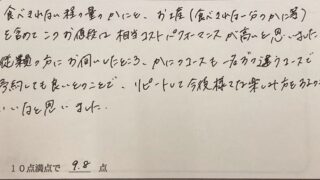 食べきれない程の量のかにと、お土産(食べきれない分のかに等)
を含めてこのお値段は相当コストパフォーマンスが高いと思いました
従業員の方にお伺いしたところ、かにのコースも一名分の違うコースで
予約しても良いとのことで、リピートして今後様々な楽しみ方を
いいなと思いました。
10点満点で 9.8 点